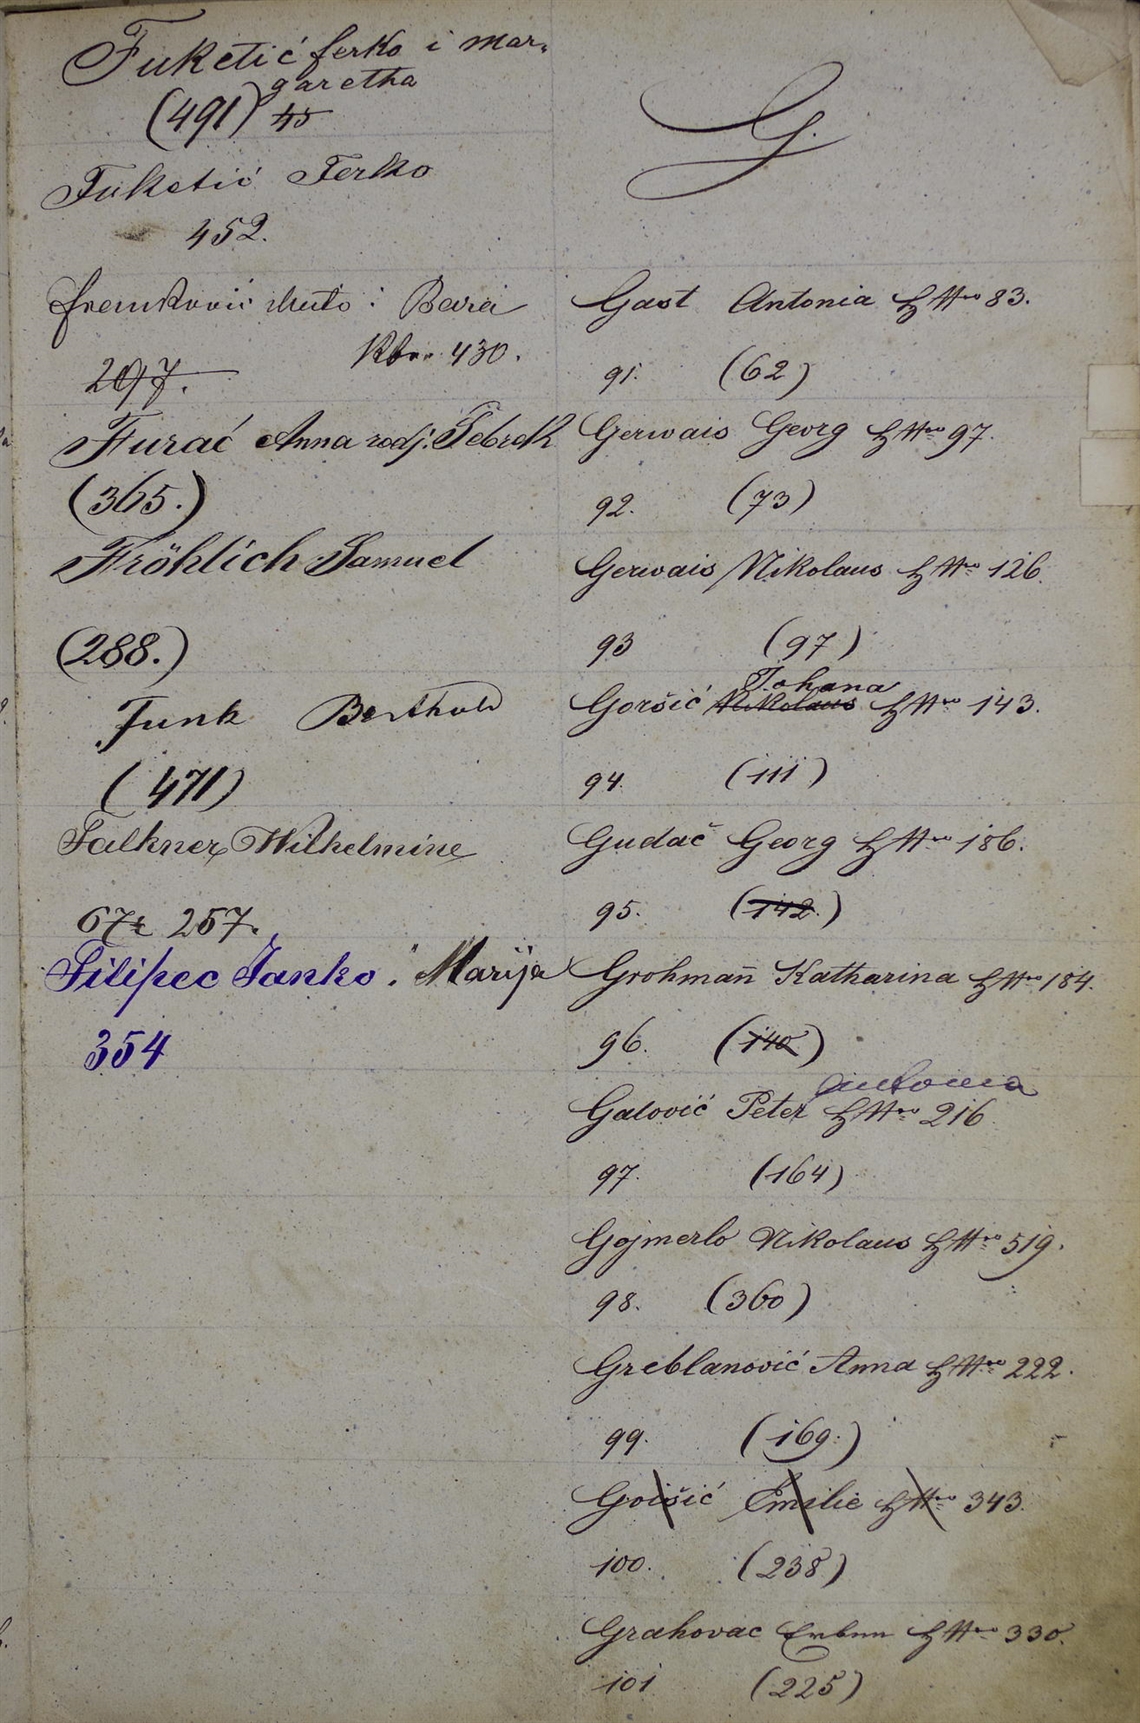 Fuketić ferko i mar-
garetha
(491) 45
Fuketić Ferko
452.
Barei
Kbr. 430.
297.
Furać Anna rodj. Šebrek
(365.)
Fröhlich Samuel
(288.)
Funk Berthold
(471)
Falkner Wilhelmine
257.
Filipec Janko i Marija
354
G.
Gast Antonia HNro 83.
91. (62)
Gervais Georg HNro 97.
92. (73)
Gervais Nikolaus HNro 126.
93 (97)
Johana
Goršić Nikolaus HNro 143.
94. (111)
Gudač Georg HNro 186.
95. (142.)
Grohmañ Katharina HNro 184.
96. (140)
Antonia
Galović Peter HNro 216
97. (164)
Gojmerlo Nikolaus HNro 519.
98. (360)
Greblanović Anna HNro 222.
99. (169.)
Goršić Emilie HNro 343.
100. (238)
Grahovac HNro 330.
101 (225)